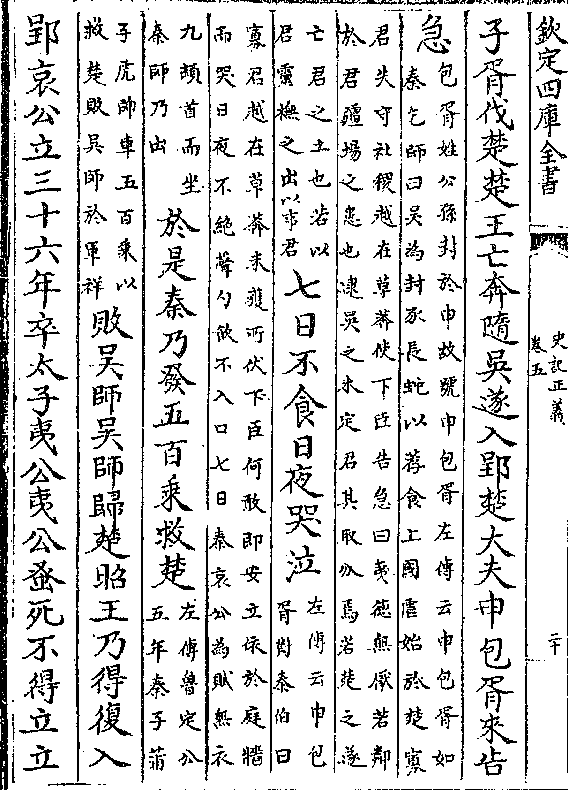 欽定四庫全書
史記正義
卷五
二十
子胥伐楚楚王亡奔隨吳遂入郢楚大夫申包胥來告
急
包胥姓公孫封於申故號申包胥左傳云申包胥如
秦乞師曰吳為封豕長蛇以荐食上國虐始於楚寡
君失守社稷越在草莽使下臣告急曰夷德無厭若鄰
於君疆場之患也逮吳之未定君其取分焉若楚之遂
亡君之土也若以
君靈撫之世以事君
七日不食日夜哭泣
左傳云申包
胥對秦伯曰
寡君越在草莽未獲所伏下臣何敢即安立依於庭牆
而哭日夜不絕聲勺飲不入口七日秦哀公為賦無衣
九頓首而坐
秦師乃出
於是秦乃發五百乘救楚
左傳魯定公
五年秦子蒲
子虎帥車五百乘以
救楚敗吳師於軍祥
敗吳師吳師歸楚昭王乃得復入
郢哀公立三十六年卒太子夷公夷公蚤死不得立立